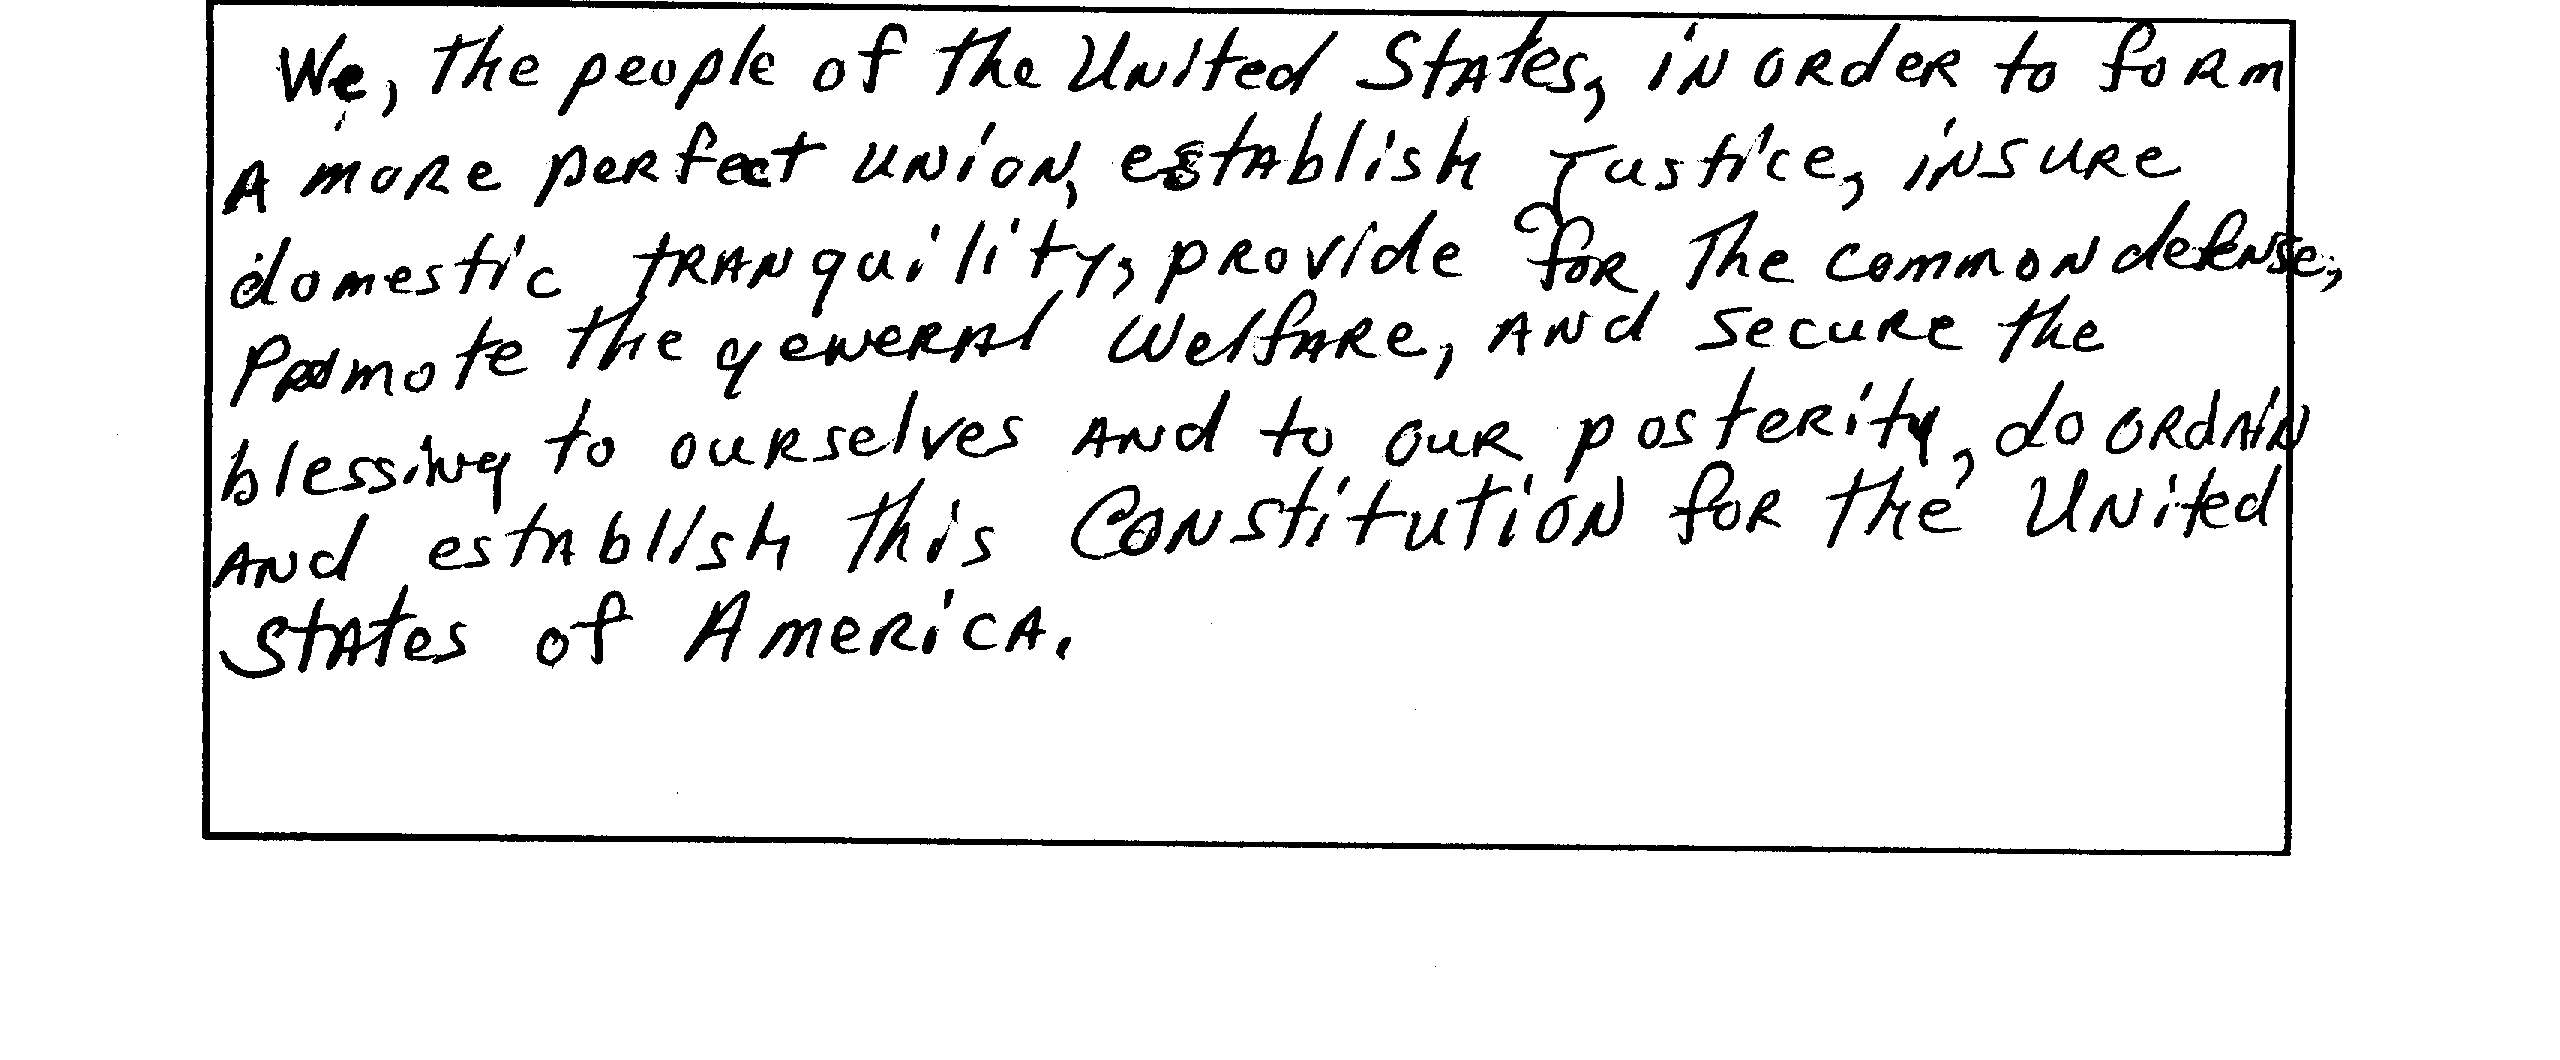 We, the people of the United States, in order to form
A more perfect union, establish Justice, insure
domestic tranquility, provide for the common defense,
Promote the general Welfare, and secure the
blessing to ourselves and to our posterity, do ordain
and establish this Constitution for the United
States of America.